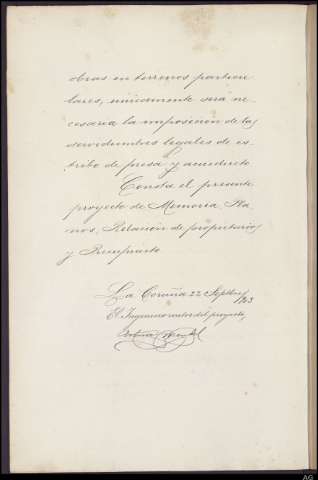 obras en terrenos particu-
lares, unicamente será ne-
cesaria la imposición de las
servidumbres legales de es-
tribo de presa y acueducto
Consta el presente
proyecto de Memoria, Pla-
nos, Relación de propietarios
y Presupuesto
La Coruña 22 Septbre 1903
El Ingeniero autor del proyecto,
AG